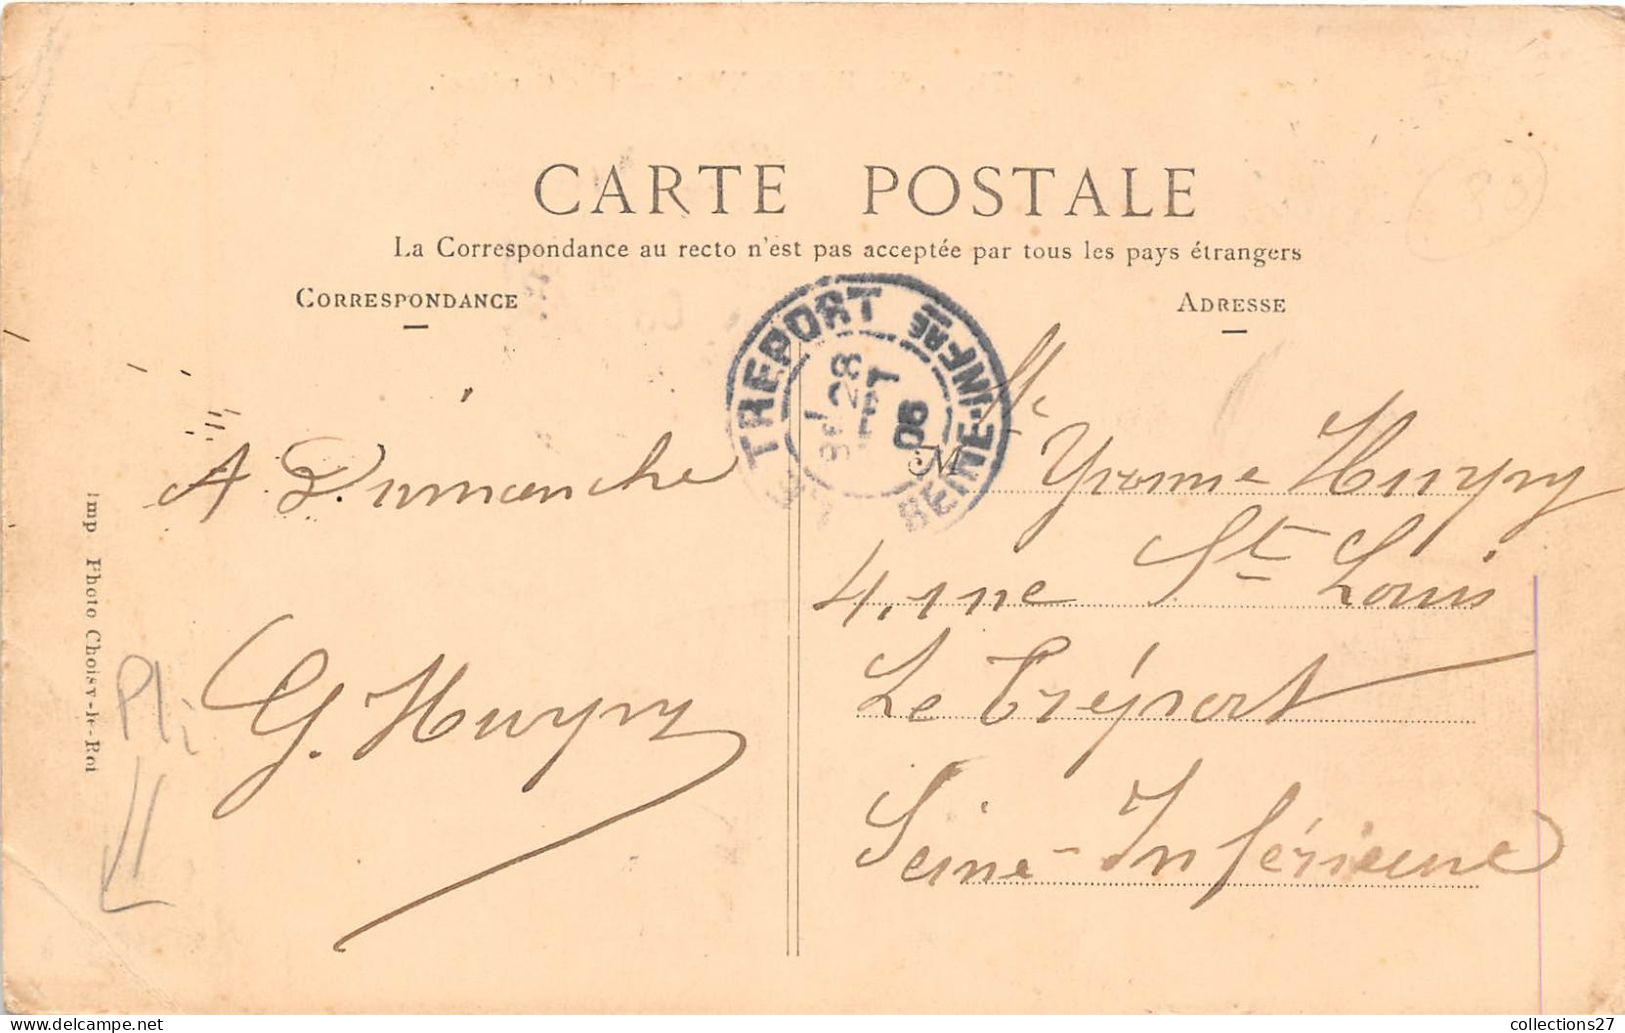 CARTE POSTALE
La Correspondance au recto n'est pas acceptée par tous les pays étrangers
CORRESPONDANCE
ADRESSE
LE TREPORT SEINE-INFRE
28
SEPT
06
A Dimanche
G. Huypy
M
Yvonne Huypy
4, rue St Louis
Le Tréport
Seine-Inférieure
Imp Photo Choisy-le-Roi
Pli
80
collections27